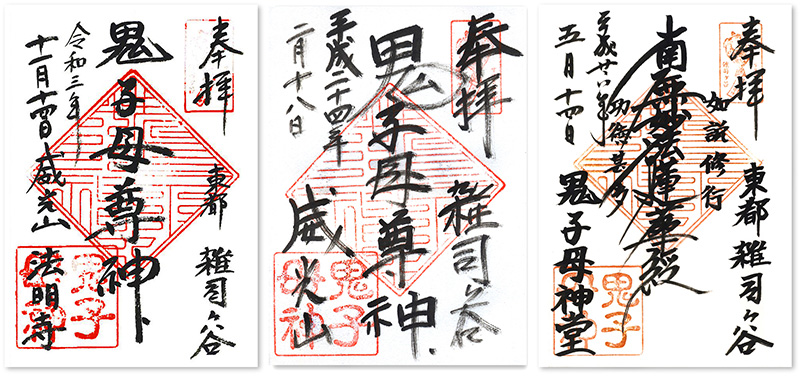 奉拝
東都 雑司ヶ谷
鬼子母尊神
令和三年
十一月十四日
威光山 法明寺
鬼子母神
奉拝
雑司ヶ谷
鬼子母尊神
平成二十四年
二月十八日
威光山
鬼子母神
奉拝
東都 雑司ヶ谷
如説修行
南無妙法蓮華経
功徳甚多
平成廿八年
五月十四日
鬼子母神堂
鬼子母神